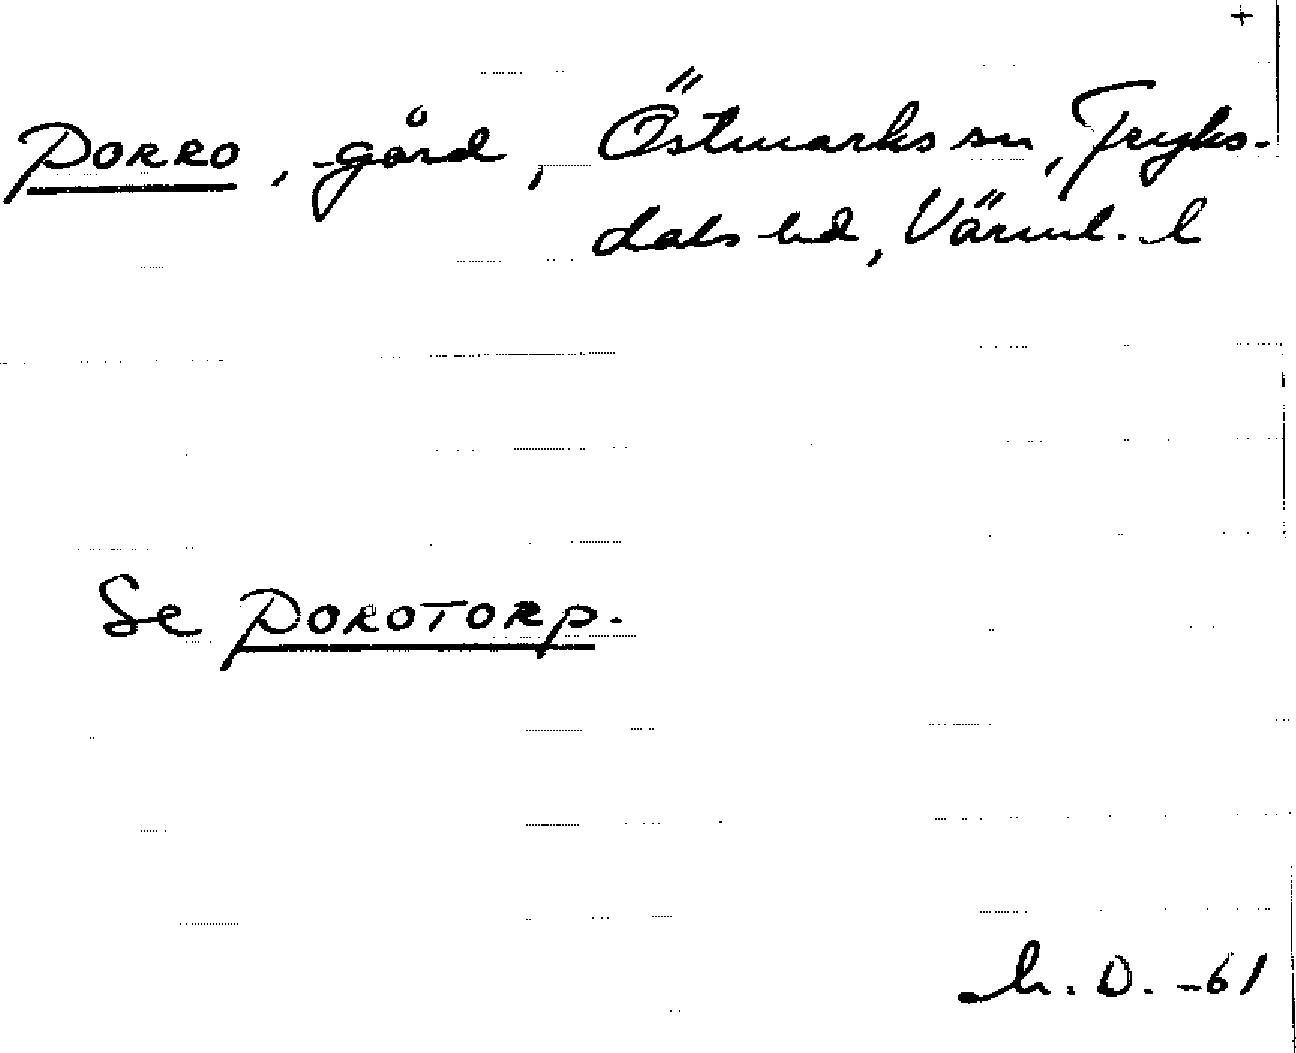 +
PORRO, gård, Östmarks sn, Fryks-
dals hd, Värml. l
Se POROTORP.
h. D. -61